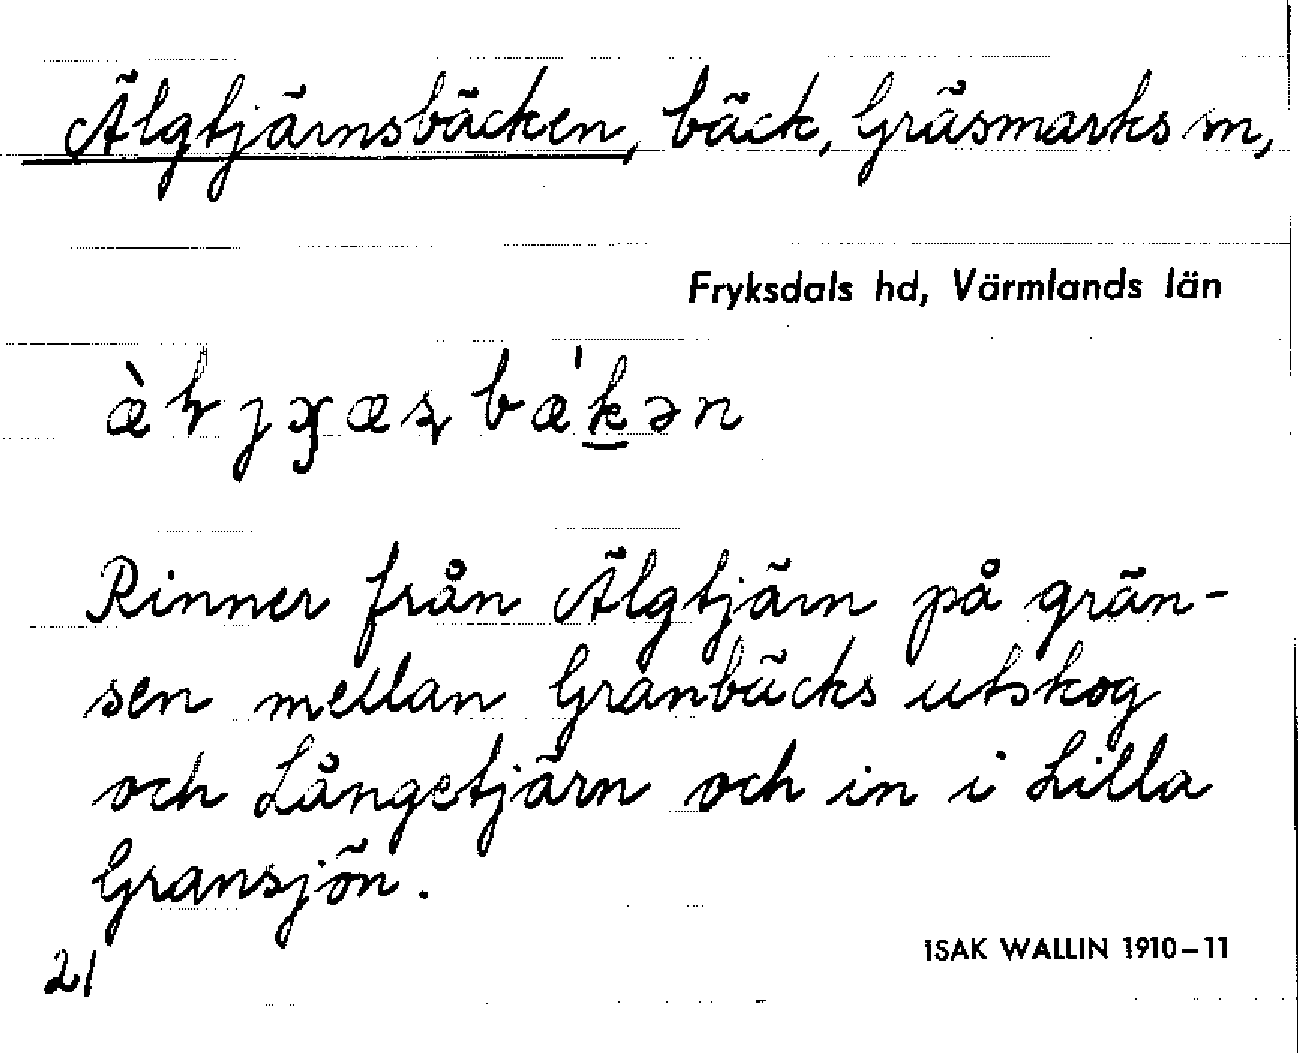 Älgtjärnsbäcken, bäck, Gräsmarks sn,
Fryksdals hd, Värmlands län
Rinner från Älgtjärn på grän-
sen mellan Granbäcks utskog
och Långetjärn och in i Lilla
Gransjön.
ISAK WALLIN 1910–11
21